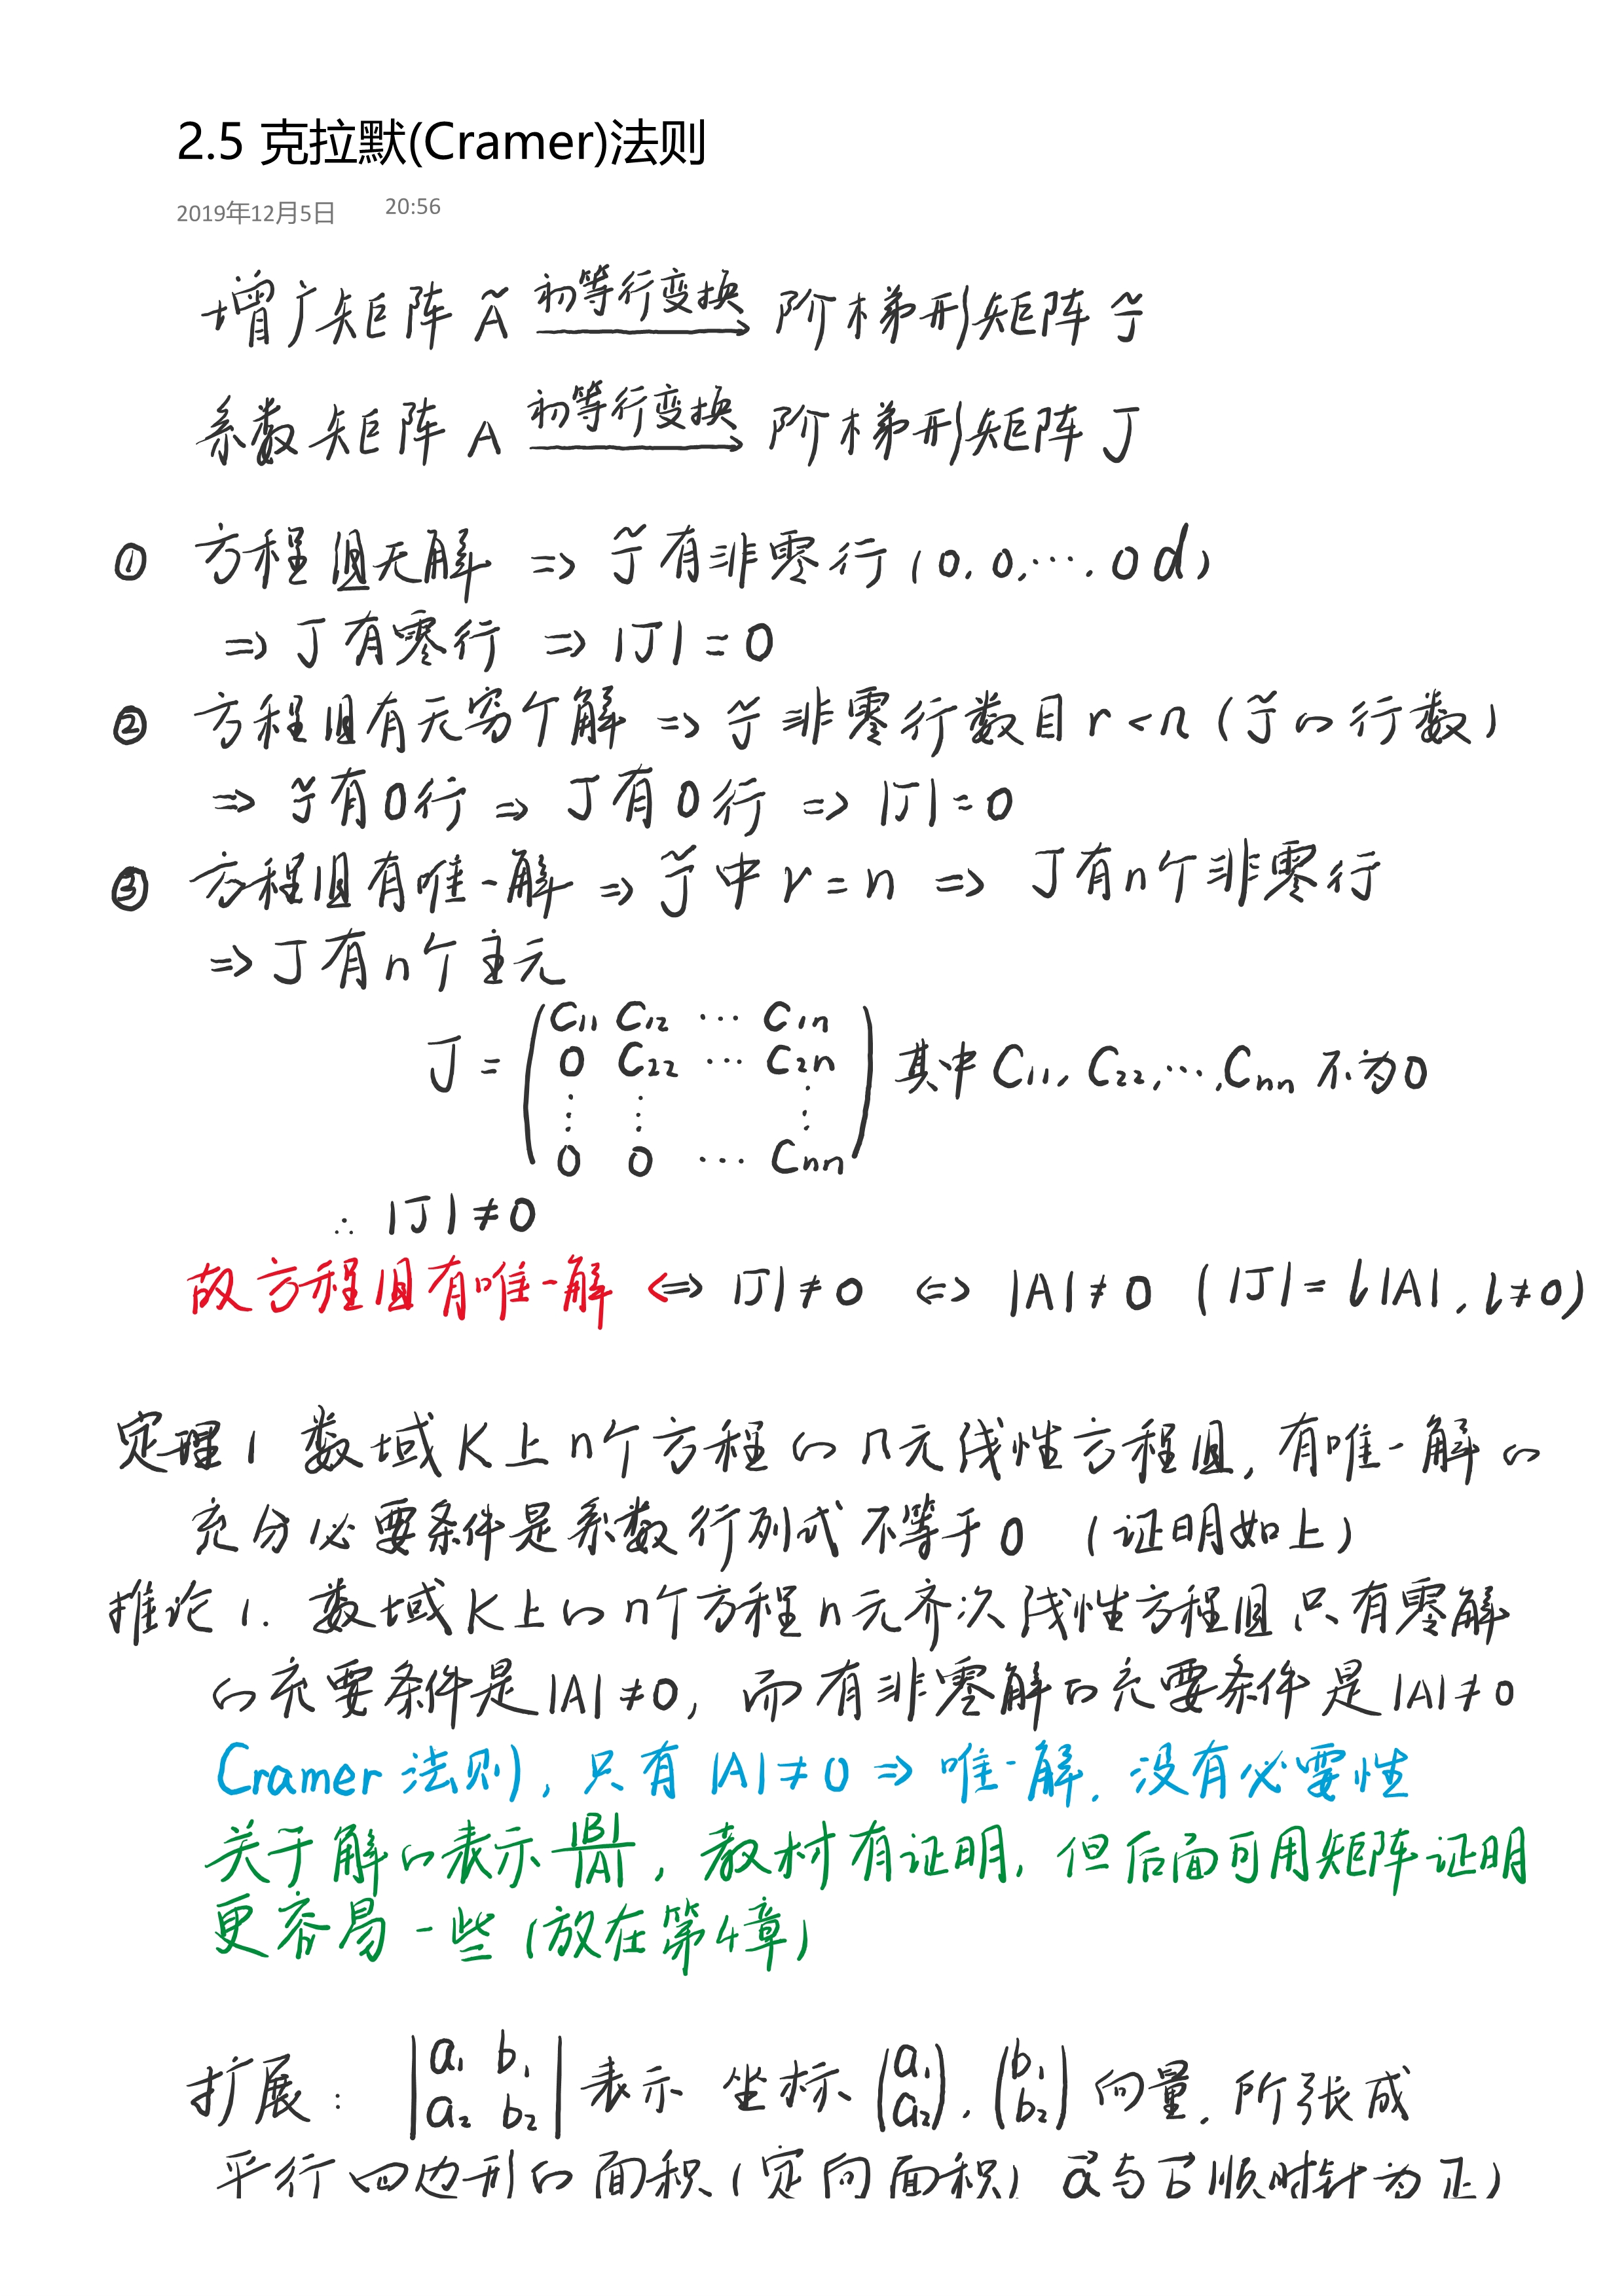 2.5 克拉默(Cramer)法则
2019年12月5日 20:56
增广矩阵 Ã 初等行变换 → 阶梯形矩阵 J̃
系数矩阵 A 初等行变换 → 阶梯形矩阵 J
① 方程组无解 ⇒ J̃有非零行(0, 0, ⋯, 0 d)
⇒ J有零行 ⇒ |J| = 0
② 方程组有无穷个解 ⇒ J̃ 非零行数目 r < n (J̃ 的行数)
⇒ J̃有0行 ⇒ J有0行 ⇒ |J| = 0
③ 方程组有唯一解 ⇒ J̃ 中 r = n ⇒ J有n个非零行
⇒ J有n个主元
J = ( C₁₁ C₁₂ ⋯ C₁n
0 C₂₂ ⋯ C₂n
⋮ ⋮ ⋮
0 0 ⋯ Cnn ) 其中 C₁₁, C₂₂, ⋯, Cnn 不为0
∴ |J| ≠ 0
故方程组有唯一解 ⇔ |J| ≠ 0 ⇔ |A| ≠ 0 (|J| = l|A|, l ≠ 0)
定理1 数域K上n个方程的n元线性方程组, 有唯一解的
充分必要条件是系数行列式不等于0 (证明如上)
推论1. 数域K上的n个方程n元齐次线性方程组只有零解
的充要条件是|A| ≠ 0, 而有非零解的充要条件是|A| ≠ 0
Cramer 法则, 只有 |A| ≠ 0 ⇒ 唯一解, 没有必要性
关于解的表示 |B|/|A|, 教材有证明, 但后面可用矩阵证明
更容易一些 (放在第4章)
扩展: | a₁ b₁
a₂ b₂ | 表示 坐标 (a₁ a₂), (b₁ b₂) 向量, 所张成
平行四边形的面积 (定向面积) a⃗与b⃗顺时针为正)